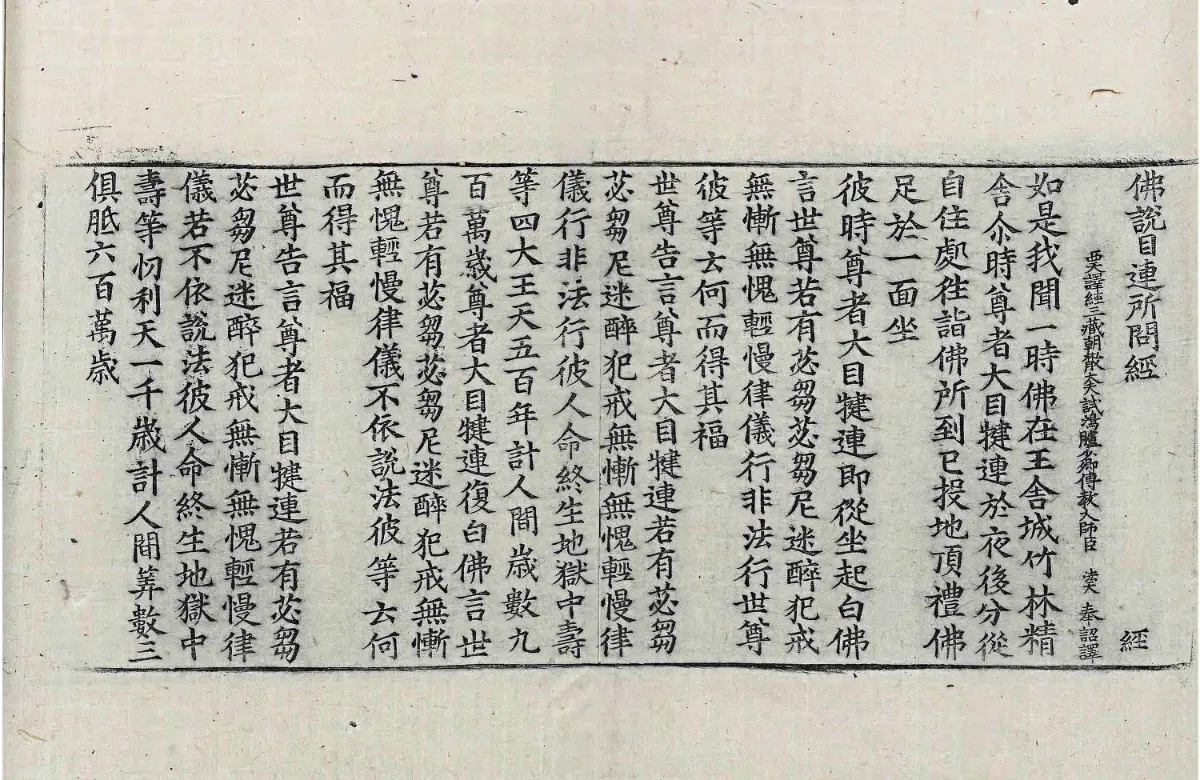 佛說目連所問經 經
西天譯經三藏朝散大夫試鴻臚少卿傳教大師臣 法天 奉詔譯
如是我聞一時佛在王舍城竹林精
舍尒時尊者大目犍連於夜後分從
自住處徃詣佛所到已投地頂禮佛
足於一面坐
彼時尊者大目犍連即從坐起白佛
言世尊若有苾芻苾芻尼迷醉犯戒
無慚無愧輕慢律儀行非法行世尊
彼等云何而得其福
世尊告言尊者大目犍連若有苾芻
苾芻尼迷醉犯戒無慚無愧輕慢律
儀行非法行彼人命終生地獄中壽
等四大王天五百年計人間歲數九
百萬歲尊者大目犍連復白佛言世
尊若有苾芻苾芻尼迷醉犯戒無慚
無愧輕慢律儀不依說法彼等云何
而得其福
世尊告言尊者大目犍連若有苾芻
苾芻尼迷醉犯戒無慚無愧輕慢律
儀若不依說法彼人命終生地獄中
壽等忉利天一千歲計人間筭數三
俱胝六百萬歲